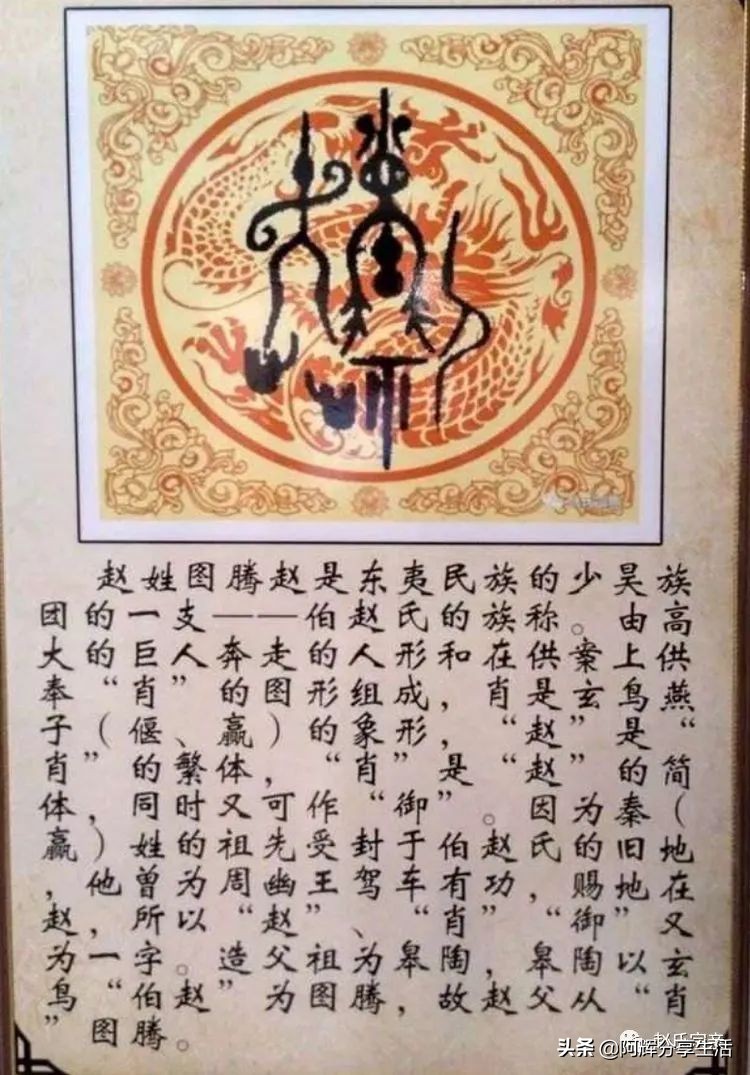 赵姓图腾赵是东夷民族的少昊族
团的一支——伯赵氏的族称。由高
大的巨人奔走的人形和在供案上供
奉“肖”的图形组成,肖是玄鸟燕
子(偃、赢)的象形,“赵”是“
肖”的繁体,“肖”是“赵”的简
体,同时又可作“御”。因为秦(
赢)姓的祖先受封于伯赵氏的旧地
,他曾为周幽王驾车有功,赐地在
赵,所以“赵”、“肖”、“御”又
为一字。造父祖为皋陶,皋陶以玄
鸟“伯赵”为祖图腾,故赵父从“肖
”图腾。
赵氏宗亲
头条 @阿辉分享生活